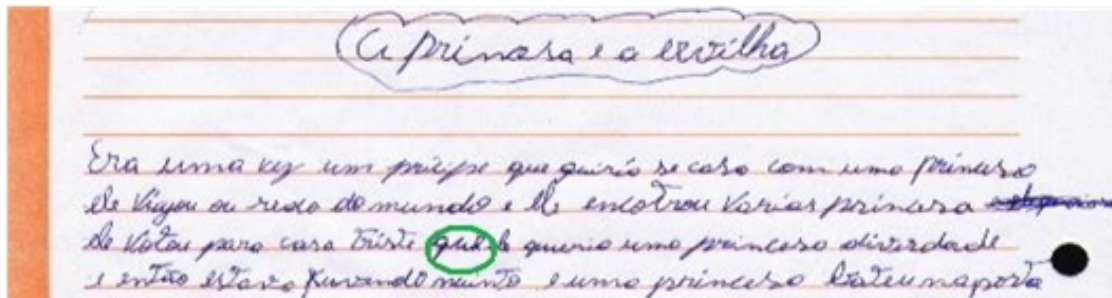 A prinsesa e a ervilha
Era uma vez um pricipe que quirio se casa com uma princesa
ele viajou ou redo do mundo e ele encotrou varias princesa
ele votou para casa triste que le queria uma princesa diverdade
e então estava xuvendo muinto e uma princesa bateu na porta